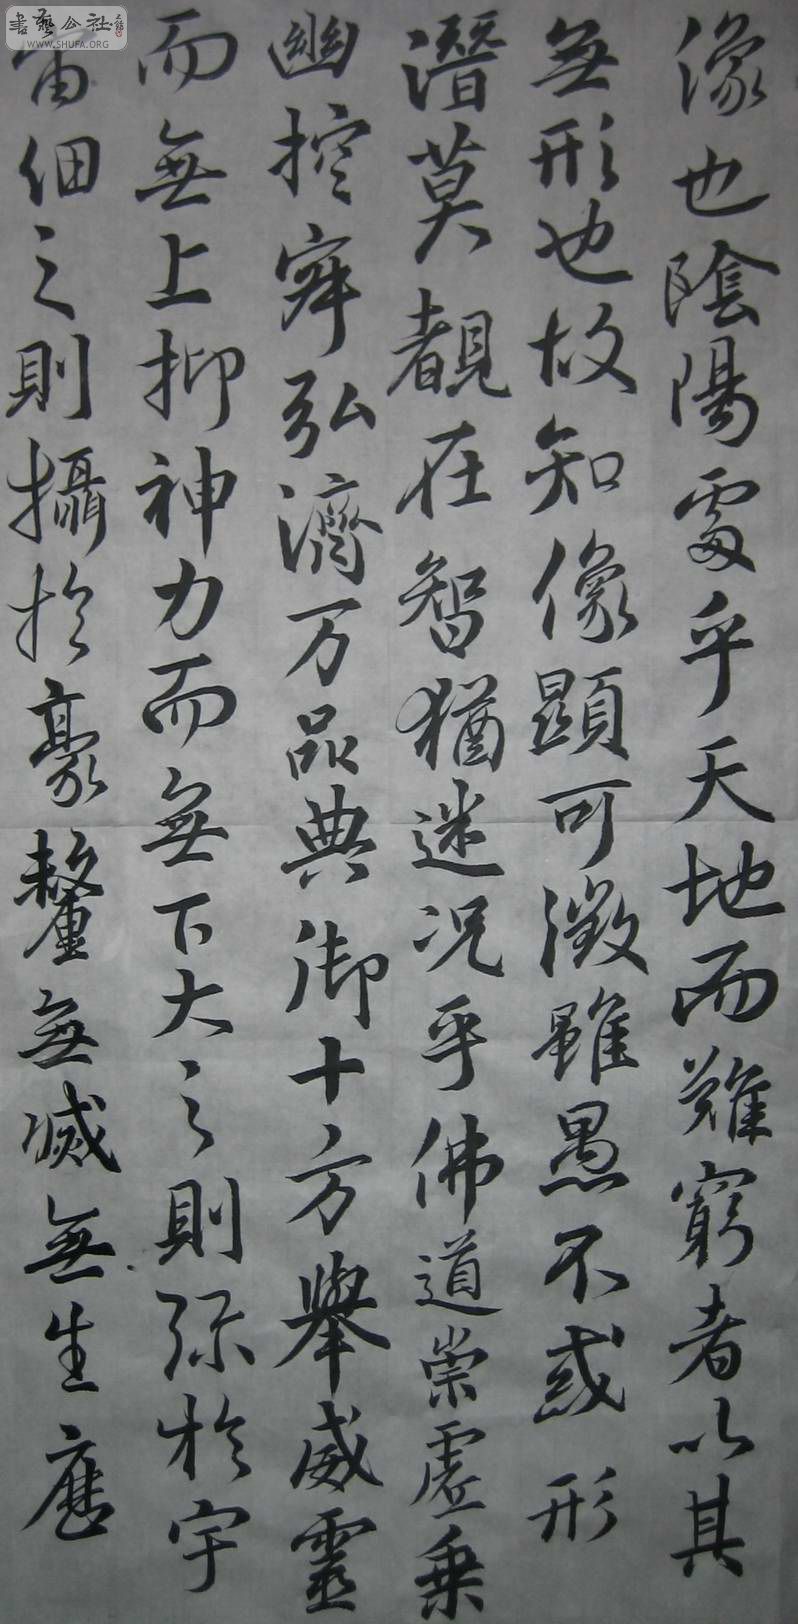 像也陰陽處乎天地而難窮者以其
無形也故知像顯可徵雖愚不惑形
潛莫覩在智猶迷况乎佛道崇虛乗
幽控寂弘濟万品典御十方舉威靈
而無上抑神力而無下大之則弥於宇
宙細之則攝於豪釐無滅無生應
書藝公社
WWW.SHUFA.ORG